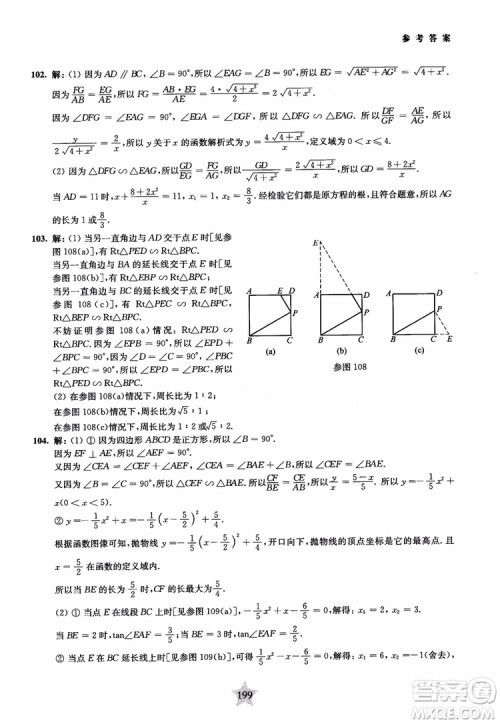 参考答案
102. 解：(1) 因为 AD // BC，∠B = 90°，所以 ∠EAG = ∠B = 90°，所以 EG = √(AE² + AG²) = √(4 + x²).
因为 FG/EG = AB/AE，所以 FG = AB·EG/AE = 4·√(4 + x²)/2 = 2√(4 + x²).
因为 ∠DFG = ∠EAG = 90°，∠EGA = ∠DGF，所以 △DFG ∽ △EAG，所以 DF/GF = AE/AG，所以
y/(2√(4 + x²)) = 2/x，所以 y 关于 x 的函数解析式为 y = 4√(4 + x²)/x，定义域为 0 < x ≤ 4.
(2) 因为 △DFG ∽ △EAG，所以 GD/GE = FG/AG，所以 GD/√(4 + x²) = 2√(4 + x²)/x，所以 GD = (8 + 2x²)/x.
当 AD = 11 时，x + (8 + 2x²)/x = 11，x = 8/3. 经检验它们是原方程的根，且符合题意，所以 AG
的长为 1 或 8/3.
103. 解：(1) 当另一直角边与 AD 交于点 E 时[见参
图 108(a)]，Rt△PED ∽ Rt△BPC.
当另一直角边与 BA 的延长线交于点 E 时
[见参图 108(b)]，Rt△PED ∽ Rt△BPC.
当另一直角边与 BC 的延长线交于点 E 时
[见参图 108(c)]，Rt△PEC ∽ Rt△BPC，
Rt△BEP ∽ Rt△BPC.
不妨证明参图 108(a)情况：Rt△PED ∽
Rt△BPC. 因为 ∠EPB = 90°，所以 ∠EPD +
∠BPC = 90°. 因为 ∠D = ∠C = 90°，所以
∠EPD + ∠PED = 90°，所以 ∠BPC =
∠PED，所以 Rt△PED ∽ Rt△BPC.
(2) 在参图 108(a)情况下，周长比为 1∶2.
在参图 108(b)情况下，周长比为 √5∶1.
在参图 108(c)情况下，周长比为 √5∶2.
E
A D
P
B C
(a)
(b)
(c)
参图 108
104. 解：(1) ① 因为四边形 ABCD 是正方形，所以 ∠B = 90°.
因为 EF ⊥ AE，所以 ∠AEF = ∠B = 90°.
又因为 ∠CEA = ∠CEF + ∠AEF = ∠B + ∠EAB，所以 ∠CEF = ∠EAB.
又因为 ∠B = ∠C = 90°，所以 △ABE ∽ △ECF，所以 CF/BE = CE/AB，所以 y/x = (5 − x)/5，所以 y = −(1/5)x² +
x(0 < x < 5).
② y = −(1/5)x² + x = −(1/5)(x − 5/2)² + 5/4.
根据函数图像可知，抛物线 y = −(1/5)(x − 5/2)² + 5/4，开口方向向下，抛物线的顶点坐标是它的最高点，即
在 x = 5/2 时，y 有最大值 5/4.
所以当 BE = 5/2 时，DF 的长最短，此时 DF 的长为 15/4.
(2) ① 当点 E 在线段 BC 上时[见参图 109(a)]，y = −(1/5)x² + x = 1，所以 x² − 5x + 5 = 0，解得：
当 BE = 2 时，tan∠EAF = 
② 当点 E 在 BC 延长线上时[见参图 109(b)]，
199